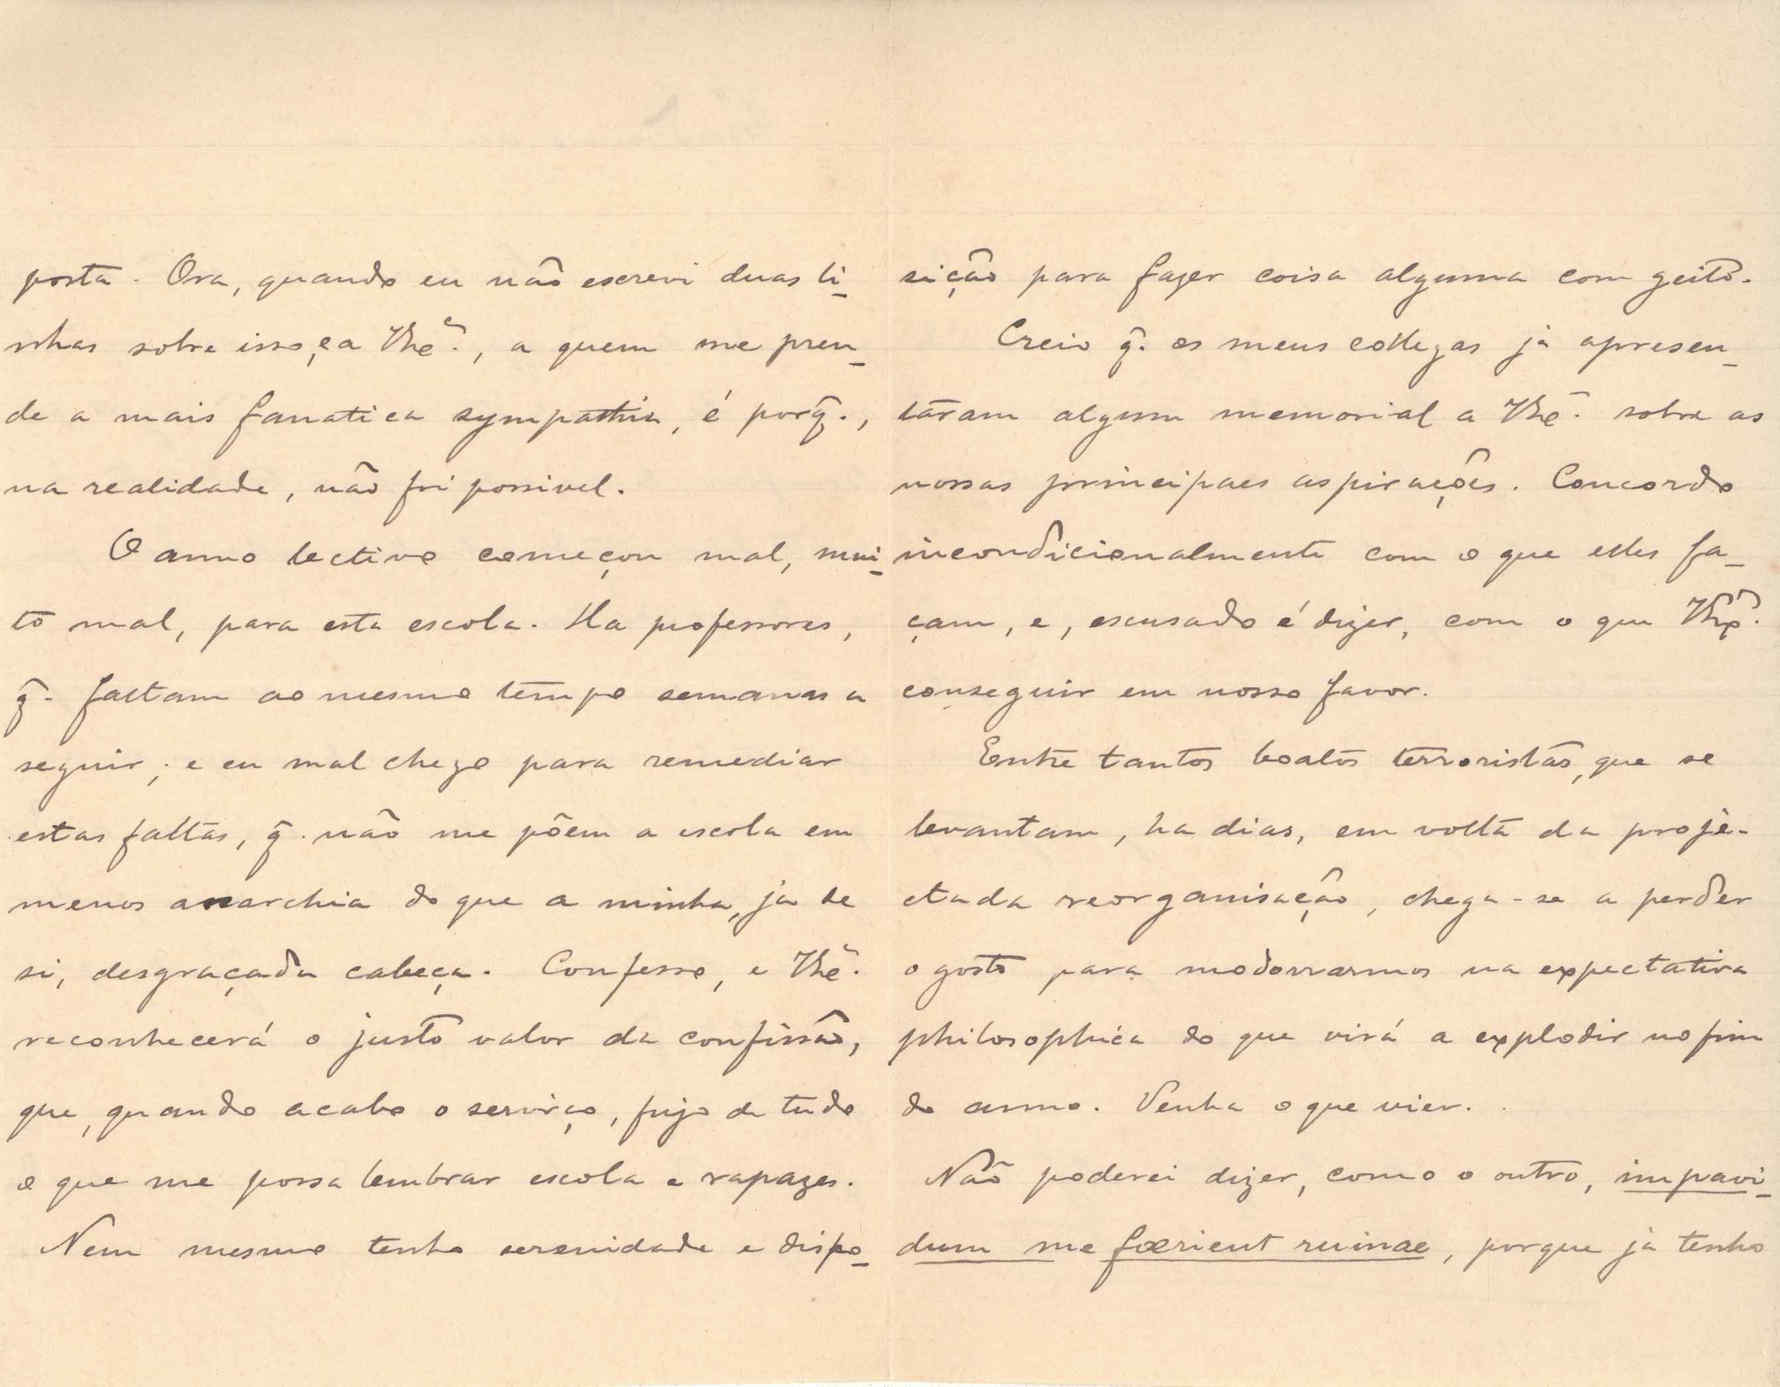 posta. Ora, quando eu não escrevi duas li-
nhas sobre isso, e a V. Ex.ª, a quem me pren-
de a mais fanatica sympathia, é porq̃.,
na realidade, não foi possivel.
O anno lectivo começou mal, mui-
to mal, para esta escola. Ha professores,
q̃. faltam ao mesmo tempo semanas a
seguir; e eu mal chego para remediar
estas faltas, q̃. não me põem a escola em
menos anarchia do que a minha, já de
si, desgraçada cabeça. Confesso, e V. Ex.ª
reconhecerá o justo valor da confissão,
que, quando acabo o serviço, fujo de tudo
o que me possa lembrar escola e rapazes.
Nem mesmo tenho serenidade e dispo-
sição para fazer coisa alguma com geito.
Creio q̃. os meus collegas já apresen-
táram algum memorial a V. Ex.ª sobre as
nossas principaes aspirações. Concordo
incondicionalmente com o que elles fa-
çam, e, escusado é dizer, com o que V. Ex.ª
conseguir em nosso favor.
Entre tantos boatos terroristas, que se
levantam, ha dias, em volta da proje-
ctada reorganisação, chega-se a perder
o gosto para modorrarmos na expectativa
philosophica do que virá a explodir no fim
do anno. Venha o que vier.
Não poderei dizer, como o outro, impavi-
dum me fœrient ruinae, porque já tenho